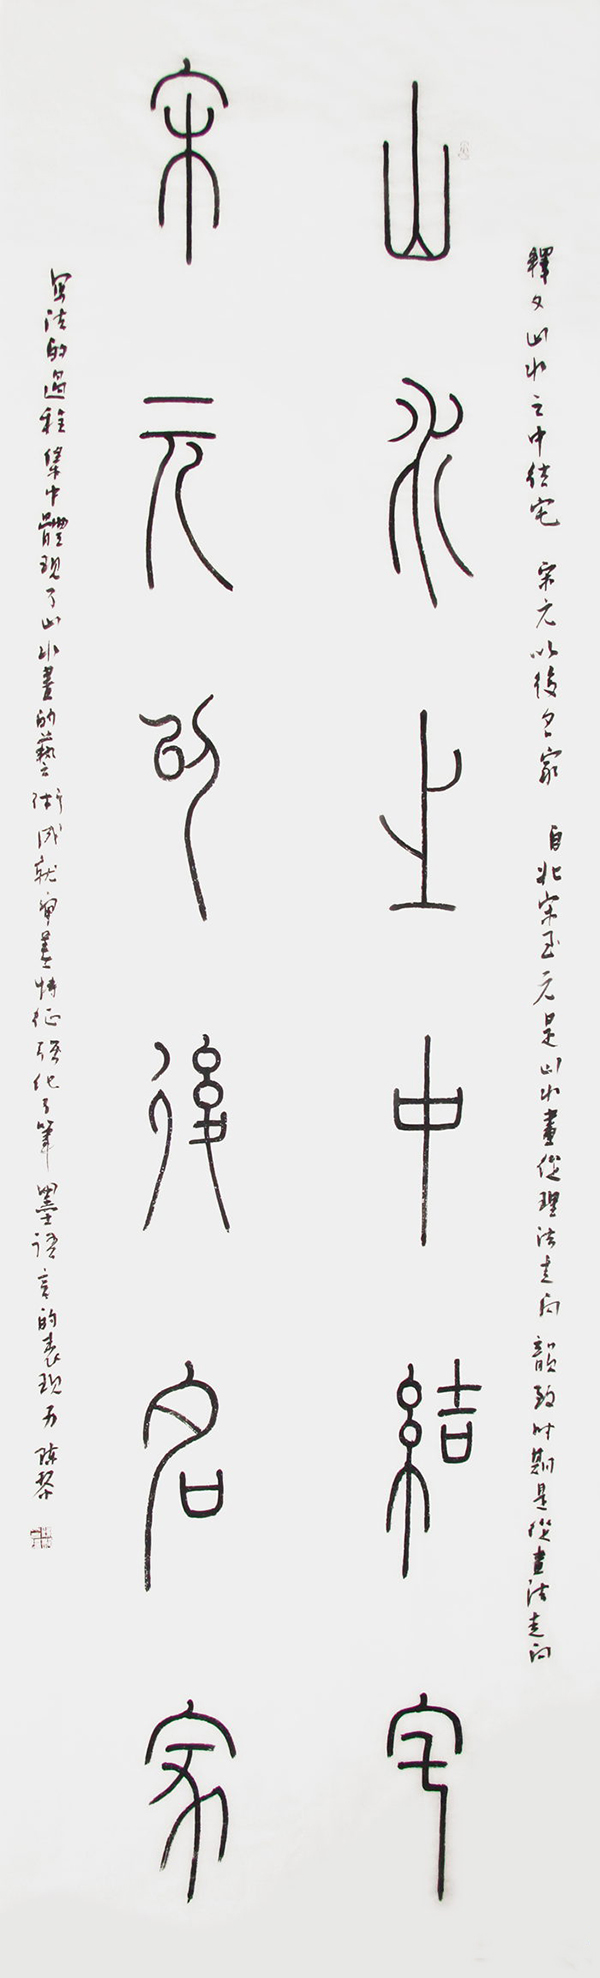 釋文山水之中結宅 宋元以後名家 自北宋至元是山水畫從理法走向韻致时期是從畫法走向
山水之中結宅
宋元以後名家
寫法的過程集中體現了山水畫的藝術成就審美特征强化了筆墨語言的表現力 陳琴